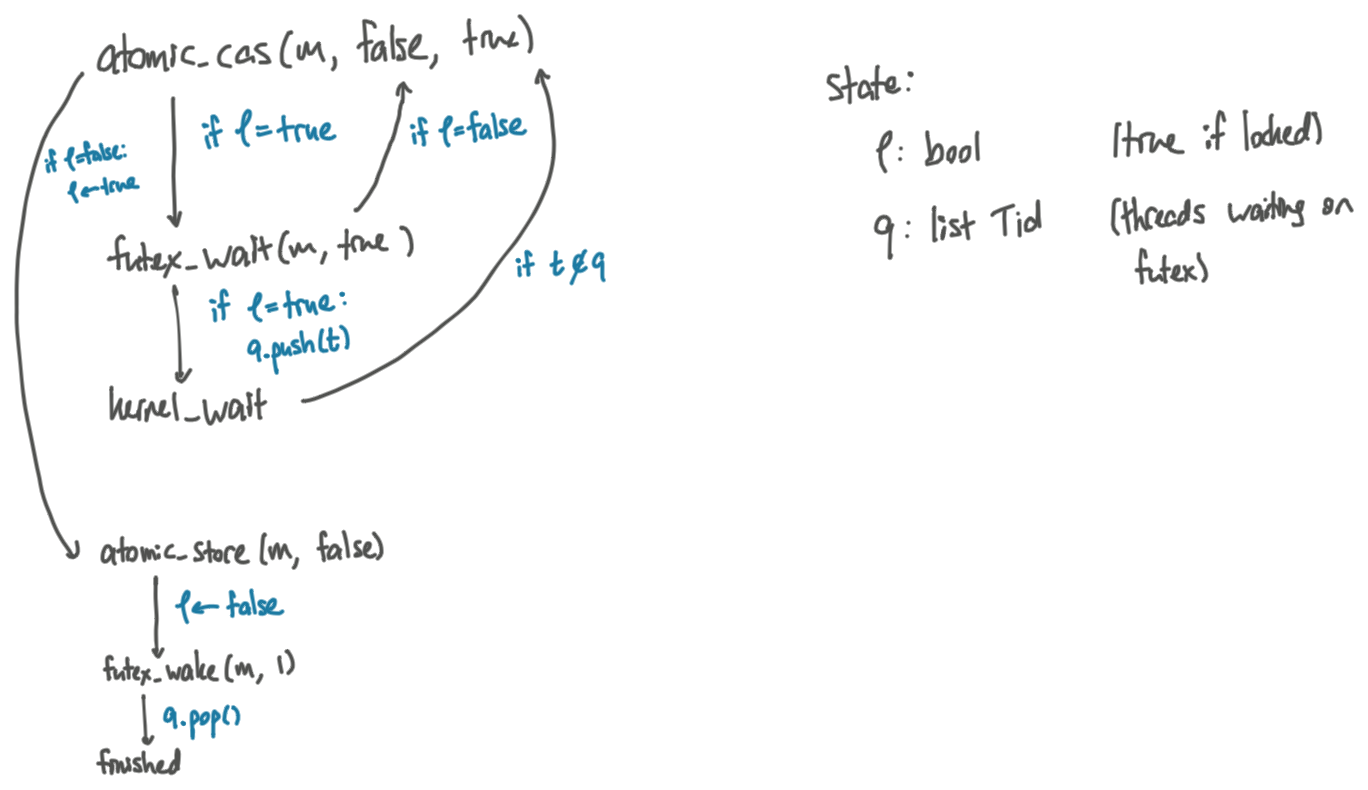 atomic_cas(m, false, true)
if l=true
if l=false
if l=false:
l←true
futex_wait(m, true)
if l=true:
q.push(t)
if t∉q
kernel_wait
atomic_store(m, false)
l←false
futex_wake(m, 1)
q.pop()
finished
state:
l: bool (true if locked)
q: list Tid (threads waiting on
futex)